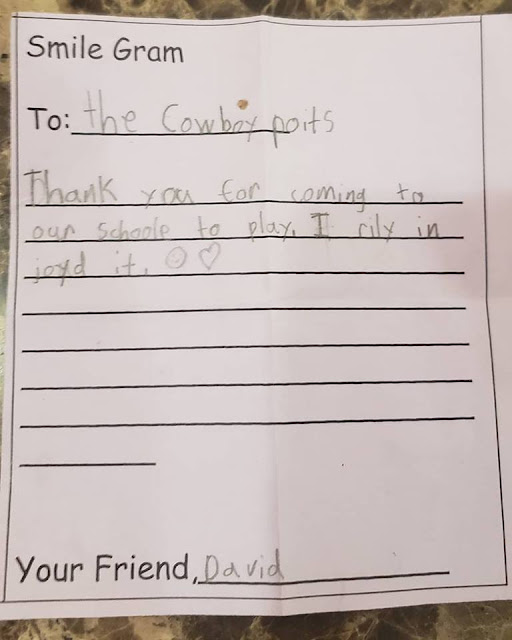 Smile Gram
To: the Cowboy poits
Thank you for coming to
our schoole to play. I rily in
joyd it. ☺♡
Your Friend, David